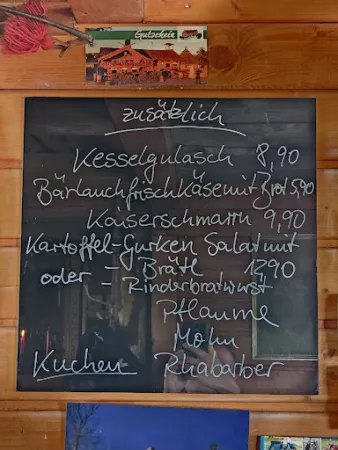 Gutschein
zusätzlich
Kesselgulasch 8,90
Bärlauchfrischkäse mit Brot 5,90
Kaiserschmarrn 9,90
Kartoffel-Gurken Salat mit
- Brätl 12,90
oder - Rinderbratwurst
Pflaume
Mohn
Kuchen Rhabarber